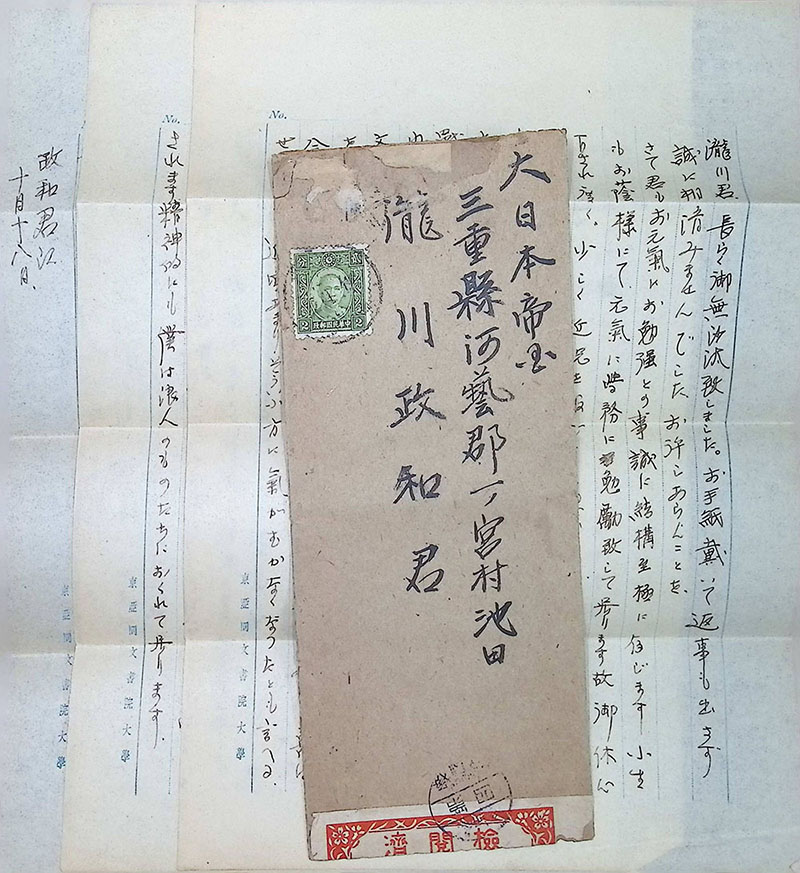 瀧川君 長らく御無沙汰致しました。お手紙戴いて返事も出さず
誠に相済みませんでした。お許しあらんことを。
さて君もお元氣にお勉強との事誠に結構至極に存じます 小生
もお蔭様にて元氣に學務に勉勵致して居ります故御休心
下され度く。少しく近況を
大日本帝国
三重縣河藝郡一ノ宮村池田
瀧川政和君
中華民國郵政
2
2
檢閲濟
No.
ふ方に氣がむかなくなつたとも言へる.
東亞同文書院大學
No.
されます精神的にも僕は浪人のものたちにおくれて居ります.
東亞同文書院大學
政和君江
十月十八日.
東亞同文書院大學